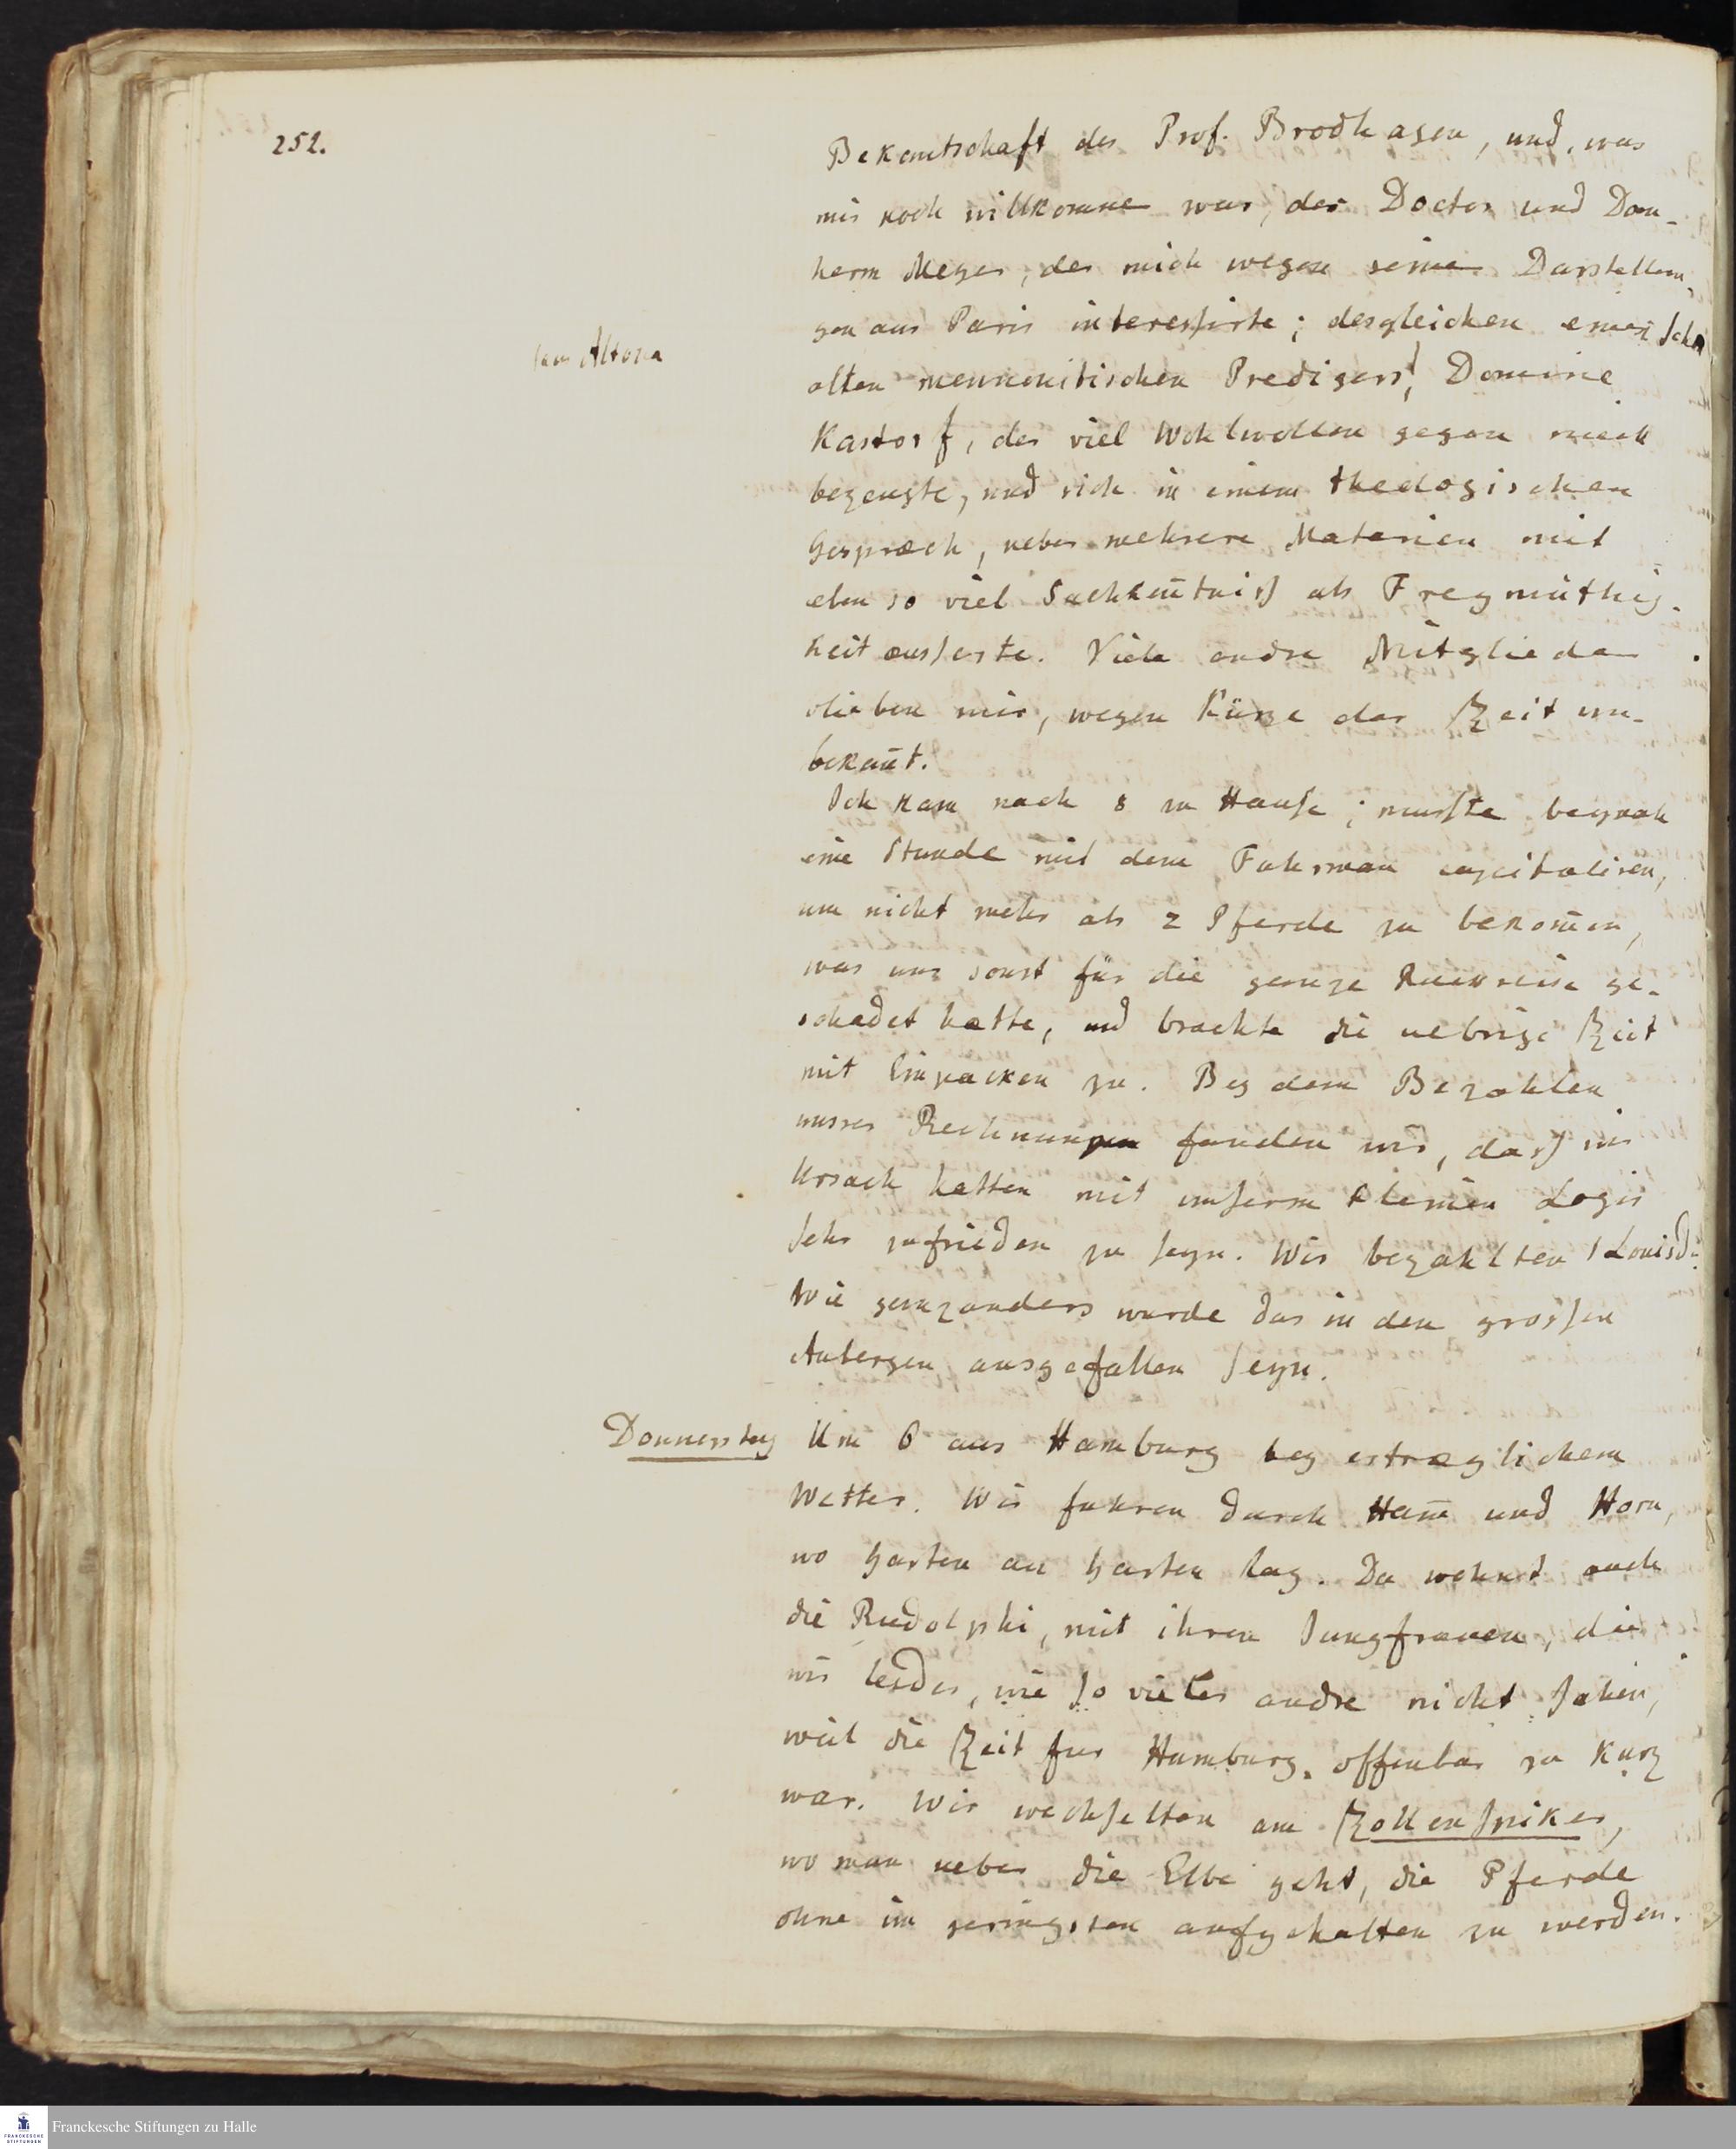 252.
Bekantschaft des Prof. Brodhagen, und, was
mir noch willkomne war, des Doctor und Dom-
herrn Meyer, der mich wegen seiner Darstellun-
gen aus Paris interessirte; desgleichen eines sehr
alten mennonitischen Predigers, Domine
Kastorf, der viel Wohlwollen gegen mich
bezeugte, und sich in einem theologischen
Gespræch, ueber mehrere Materien mit
eben so viel Sachken̄tniss als Freymüthig-
keit æusserte. Viele andre Mitglieder
blieben mir, wegen Kürze der Zeit un-
bekan̄t.
(aus Altona
Ich kam nach 8 zu Hause; musste beynah
eine Stunde mit dem Fuhrman capituliren,
um nicht mehr als 2 Pferde zu bekom̄en,
was uns sonst für die ganze Rückreise ge-
schadet hætte, und brachte die uebrige Zeit
mit Einpacken zu. Bey dem Bezahlen
unsrer Rechnungen fanden wir, dass wir
Ursach hatten mit unserm kleinen Logis
sehr zufrieden zu seyn. Wir bezahlten 1 Louisd'
Wie ganz anders würde das in den grossen
Aubergen ausgefallen seyn.
Donnerstag Um 6 aus Hamburg bey ertræglichem
Wetter. Wir fuhren durch Ham̄ und Horn,
wo Garten an Garten lag. Da wohnt auch
die Rudolphi, mit ihren Jungfrauen, die
wir leider, wie so vieles andre nicht sahen,
weil die Zeit für Hamburg offenbar zu kurz
war. Wir wechselten am Zollenspiker,
wo man ueber die Elbe geht, die Pferde
ohne im geringsten aufgehalten zu werden.
Franckesche Stiftungen zu Halle